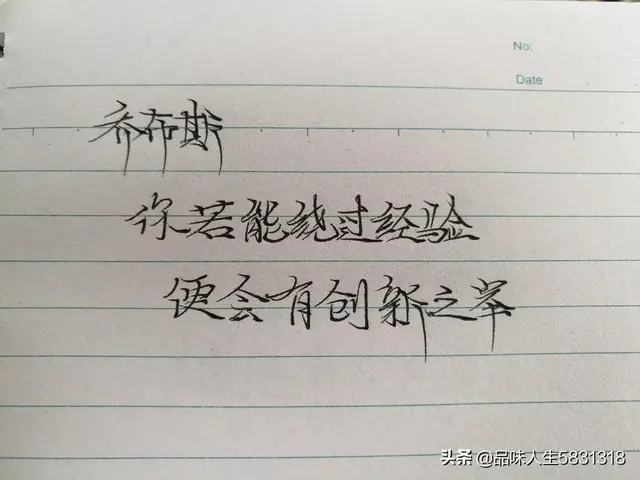 No:
Date
乔布斯
你若能绕过经验
便会有创新之举
头条 @品味人生5831318